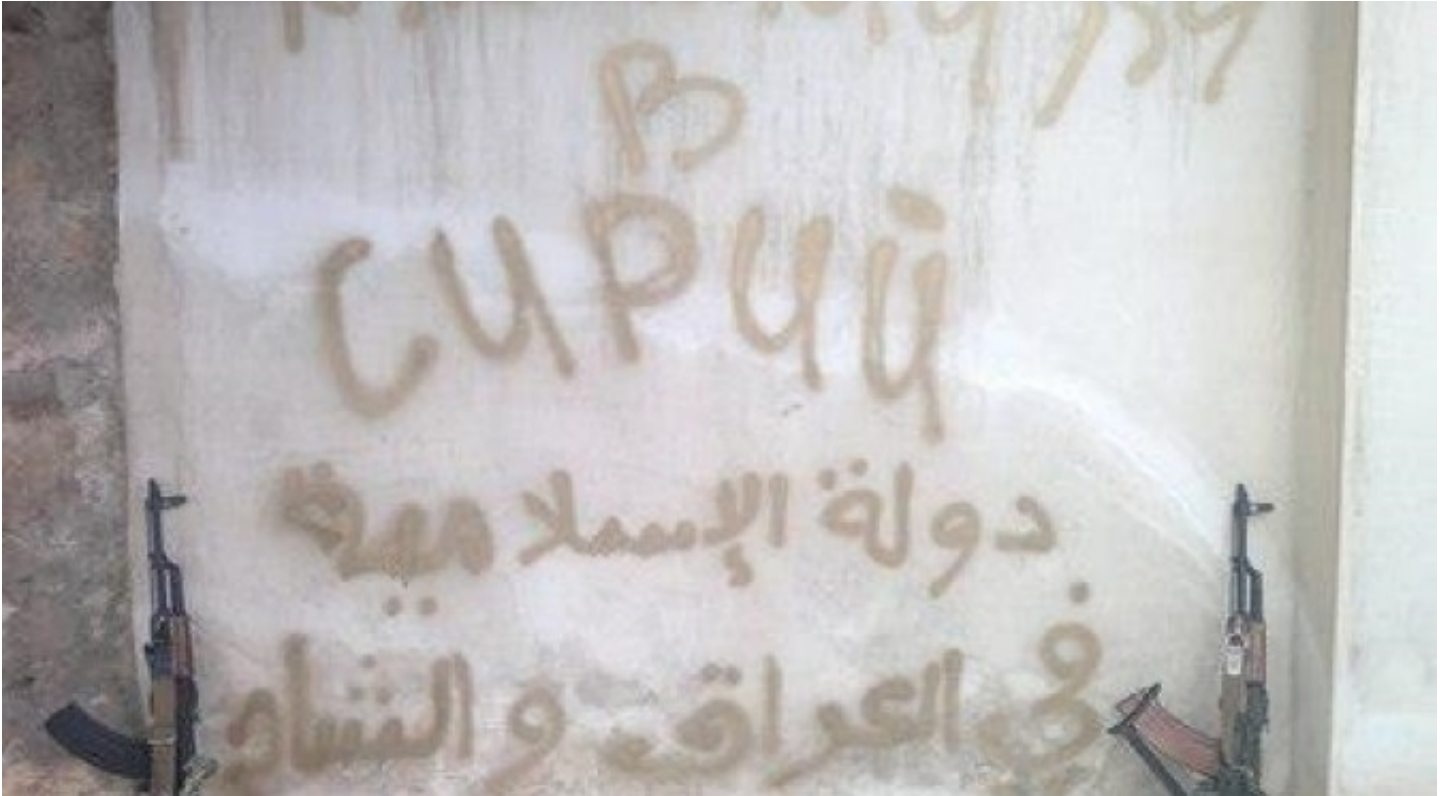 В
СИРИЙ
دولة الإسلامية
في العراق والشام